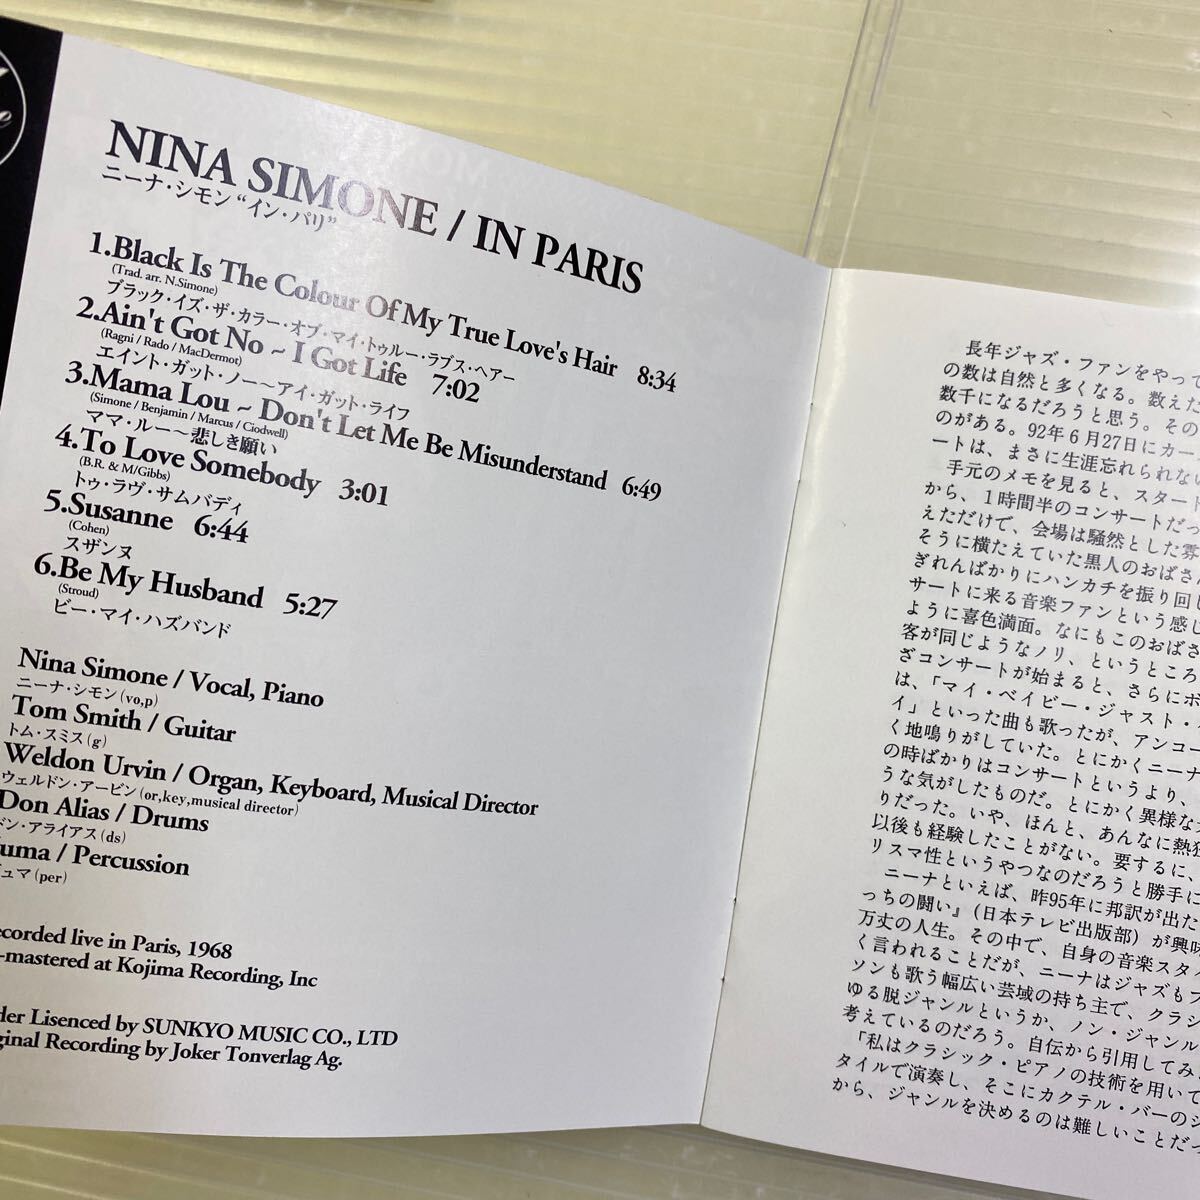 NINA SIMONE / IN PARIS
ニーナ・シモン“イン・パリ”
1.Black Is The Colour Of My True Love's Hair 8:34
(Trad. arr. N.Simone)
ブラック・イズ・ザ・カラー・オブ・マイ・トゥルー・ラブス・ヘアー
2.Ain't Got No ~ I Got Life 7:02
(Ragni / Rado / MacDermot)
エイント・ガット・ノー～アイ・ガット・ライフ
3.Mama Lou ~ Don't Let Me Be Misunderstand 6:49
(Simone / Benjamin / Marcus / Ciodwell)
ママ・ルー～悲しき願い
4.To Love Somebody 3:01
(B.R. & M/Gibbs)
トゥ・ラヴ・サムバディ
5.Susanne 6:44
(Cohen)
スザンヌ
6.Be My Husband 5:27
(Stroud)
ビー・マイ・ハズバンド
Nina Simone / Vocal, Piano
ニーナ・シモン(vo,p)
Tom Smith / Guitar
トム・スミス(g)
Weldon Urvin / Organ, Keyboard, Musical Director
ウェルドン・アービン(or,key,musical director)
Don Alias / Drums
ドン・アライアス(ds)
uma / Percussion
ジュマ(per)
ecorded live in Paris, 1968
-mastered at Kojima Recording, Inc
der Lisenced by SUNKYO MUSIC CO., LTD
ginal Recording by Joker Tonverlag Ag.
長年ジャズ・ファンをやって
の数は自然と多くなる。数えた
数千になるだろうと思う。その
のがある。92年6月27日にカー
ートは、まさに生涯忘れられない
手元のメモを見ると、スタート
から、1時間半のコンサートだっ
えただけで、会場は騒然とした雰
そうに横たえていた黒人のおばさ
ぎれんばかりにハンカチを振り回し
サートに来る音楽ファンという感じ
ように喜色満面。なにもこのおばさ
客が同じようなノリ、というところ
ざコンサートが始まると、さらにボ
は、「マイ・ベイビー・ジャスト・
イ」といった曲も歌ったが、アンコー
く地鳴りがしていた。とにかくニーナ
の時ばかりはコンサートというより、
うな気がしたものだ。とにかく異様な
りだった。いや、ほんと、あんなに熱狂
以後も経験したことがない。要するに、
リスマ性というやつなのだろうと勝手に
ニーナといえば、昨95年に邦訳が出た
っちの闘い』(日本テレビ出版部)が興味
万丈の人生。その中で、自身の音楽スタ
く言われることだが、ニーナはジャズもブ
ソンも歌う幅広い芸域の持ち主で、クラシ
ゆる脱ジャンルというか、ノン・ジャンル
考えているのだろう。自伝から引用してみ
「私はクラシック・ピアノの技術を用いて
タイルで演奏し、そこにカクテル・バーのジ
から、ジャンルを決めるのは難しいことだっ